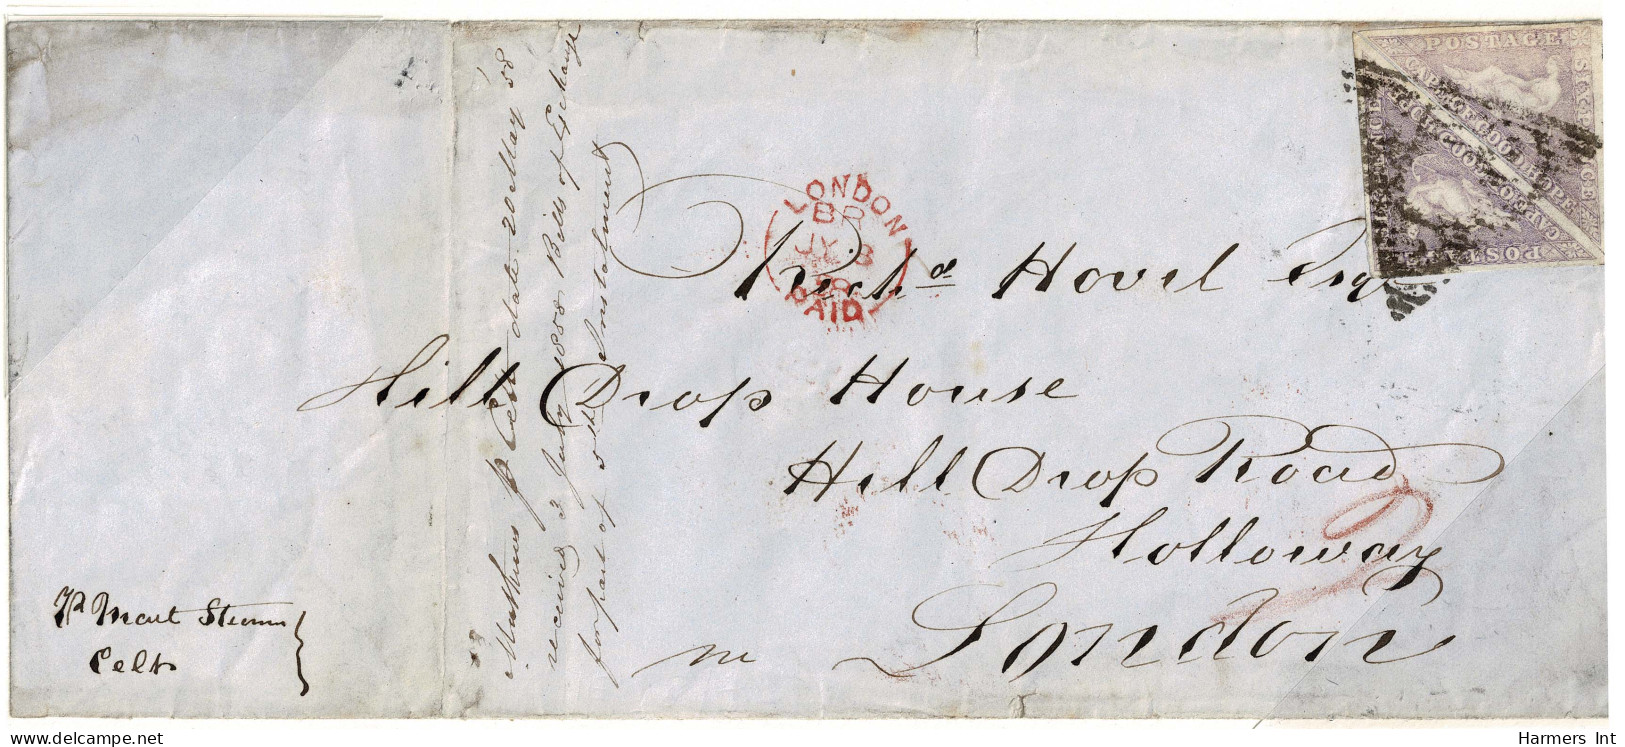 POSTAGE
SIXPENCE
CAPE OF GOOD HOPE
CAPE OF GOOD HOPE
POSTAGE
SIXPENCE
LONDON
BR
JY 3
58
PAID
Richd Hovil Esqr
Hill Drop House
Hill Drop Road
Holloway
London
p Mail Steam
Celt
p Celt date 20 May 58
received 3 July 1858 Bills of Exchange
for part of 5th Instalment
Harmers Int